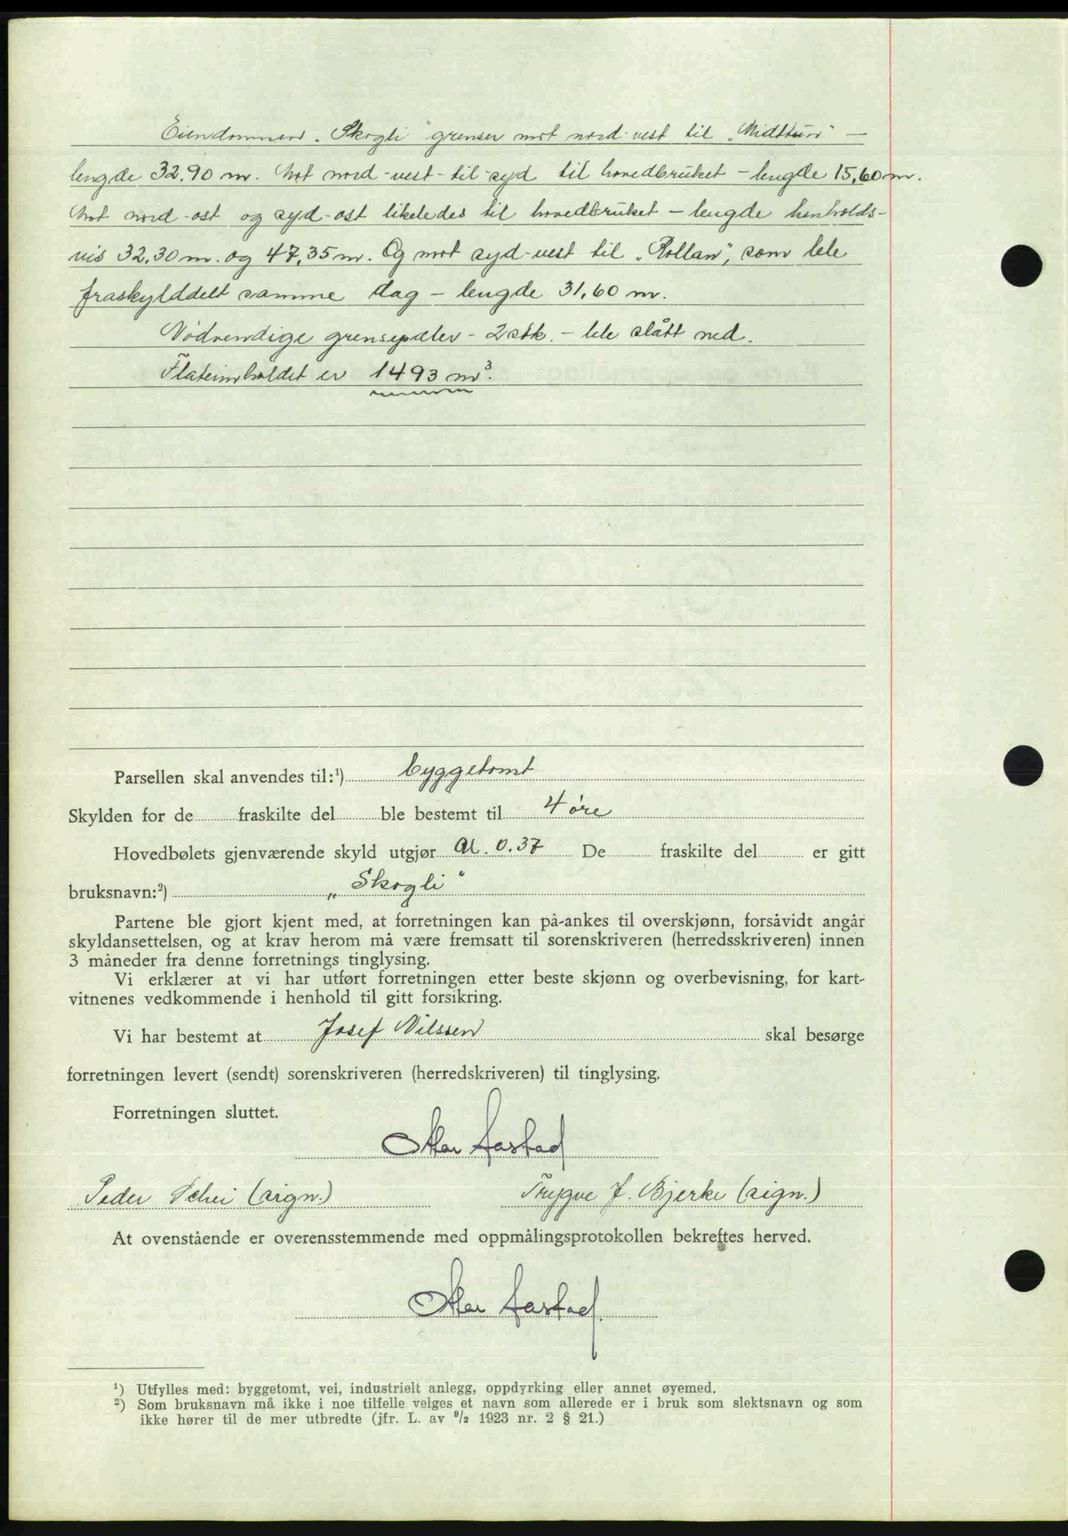 Eiendommen „Skogli" grenser mot nord-vest til „Midttun" –
lengde 32,90 m. Mot nord-vest-til-syd til hovedbruket – lengde 15,60 m.
Mot nord-ost og syd-ost likeledes til hovedbruket – lengde henholds-
vis 32,30 m. og 47,35 m. Og mot syd-vest til „Rollan", som ble
fraskylddelt samme dag – lengde 31,60 m.
Nødvendige grensepæler – 2 stk. – ble slått ned.
Flateinholdet er 1493 m³.
Parsellen skal anvendes til:¹) byggetomt
Skylden for de fraskilte del ble bestemt til 4 øre
Hovedbølets gjenværende skyld utgjør 0.37 De fraskilte del er gitt
bruksnavn:²) „Skogli"
Partene ble gjort kjent med, at forretningen kan på-ankes til overskjønn, forsåvidt angår
skyldansettelsen, og at krav herom må være fremsatt til sorenskriveren (herredsskriveren) innen
3 måneder fra denne forretnings tinglysing.
Vi erklærer at vi har utført forretningen etter beste skjønn og overbevisning, for kart-
vitnenes vedkommende i henhold til gitt forsikring.
Vi har bestemt at Josef Nilssen skal besørge
forretningen levert (sendt) sorenskriveren (herredskriveren) til tinglysing.
Forretningen sluttet.
Aastad
Peder Schei (sign.) Trygve J. Bjerke (sign.)
At ovenstående er overensstemmende med oppmålingsprotokollen bekreftes herved.
Aastad
¹) Utfylles med: byggetomt, vei, industrielt anlegg, oppdyrking eller annet øyemed.
²) Som bruksnavn må ikke i noe tilfelle velges et navn som allerede er i bruk som slektsnavn og som
ikke hører til de mer utbredte (jfr. L. av ⁹/₂ 1923 nr. 2 § 21.)